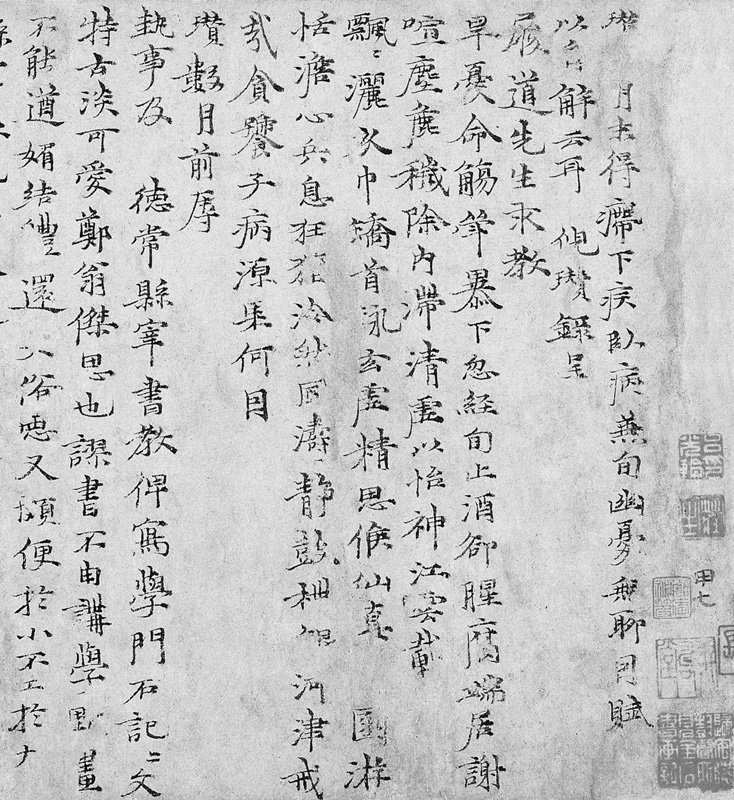 甲七
瓚 月末得滯下疾臥病兼旬幽憂無聊因賦
以自解云耳 倪瓚錄呈
履道先生求教
旱憂命觴 暴下忽經旬止酒卻腥腐端居謝
喧塵 穢除內滯清虛以怡神江雲載
飄〻灑衣巾矯首詠玄虛精思候仙真 園游
恬澹心兵息狂 冷然回濤靜鼓枻 河津戒
哉貪饕子病源果何因
瓚數月前辱
執事及 德常縣宰書教俾寫學門石記〻文
特古淡可愛鄭翁傑思也謬書不由講學點畫
不能遒媚結體還入俗惡又頗便於小不工於大